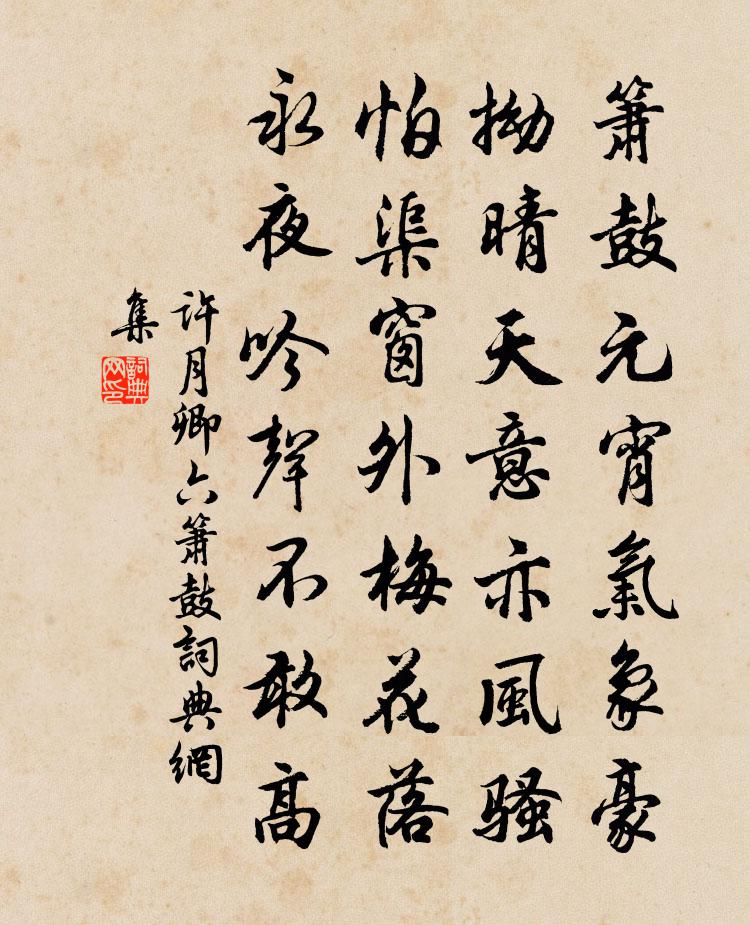 簫鼓元宵氣象豪
拗晴天意亦風騷
怕渠窗外梅花落
永夜吟聲不敢高
許月卿六簫鼓詞典網
集
詞典
网印